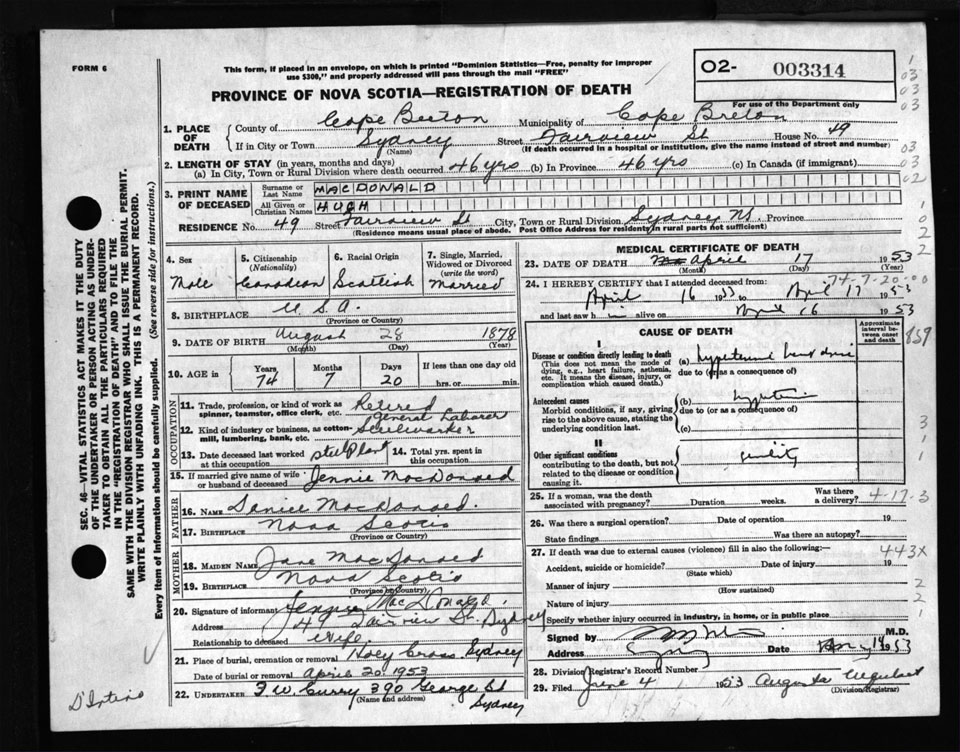 FORM 6
This form, if placed in an envelope, on which is printed "Dominion Statistics—Free, penalty for improper
use $300," and properly addressed will pass through the mail "FREE"
O2- 003314
For use of the Department only
PROVINCE OF NOVA SCOTIA—REGISTRATION OF DEATH
1. PLACE OF DEATH
County of Cape Breton Municipality of Cape Breton
If in City or Town Sydney Street Fairview St House No. 49
(Name) (If death occurred in a hospital or institution, give the name instead of street and number)
2. LENGTH OF STAY (in years, months and days)
(a) In City, Town or Rural Division where death occurred 46 yrs (b) In Province 46 yrs (c) In Canada (if immigrant)
3. PRINT NAME OF DECEASED
Surname or Last Name MACDONALD
All Given or Christian Names HUGH
RESIDENCE No. 49 Street Fairview St City, Town or Rural Division Sydney NS. Province
(Residence means usual place of abode. Post Office Address for residents in rural parts not sufficient)
4. Sex Male
5. Citizenship (Nationality) Canadian
6. Racial Origin Scottish
7. Single, Married, Widowed or Divorced (write the word) Married
8. BIRTHPLACE U.S.A.
(Province or Country)
9. DATE OF BIRTH August 28 1878
(Month) (Day) (Year)
10. AGE in Years 74 Months 7 Days 20 If less than one day old hrs. or min.
OCCUPATION
11. Trade, profession, or kind of work as spinner, teamster, office clerk, etc. Retired General Laborer
12. Kind of industry or business, as cotton-mill, lumbering, bank, etc. Steelworker
13. Date deceased last worked at this occupation Steel Plant 14. Total yrs. spent in this occupation
15. If married give name of wife or husband of deceased Jennie MacDonald
FATHER
16. NAME Daniel MacDonald
17. BIRTHPLACE Nova Scotia
(Province or Country)
MOTHER
18. MAIDEN NAME Jane MacDonald
19. BIRTHPLACE Nova Scotia
(Province or Country)
20. Signature of informant Jennie MacDonald
Address 49 Fairview St. Sydney
Relationship to deceased Wife
21. Place of burial, cremation or removal Holy Cross Sydney
Date of burial, cremation or removal April 20 1953
22. UNDERTAKER F W Curry 390 George St
(Name and address)
Sydney
MEDICAL CERTIFICATE OF DEATH
23. DATE OF DEATH April 17 1953
(Month) (Day) (Year)
74-7-20
24. I HEREBY CERTIFY that I attended deceased from:
April 16 1953 to April 17 1953
and last saw h im alive on April 16 1953
CAUSE OF DEATH
Approximate interval between onset and death
I
Disease or condition directly leading to death
(This does not mean the mode of dying, e.g., heart failure, asthenia, etc. It means the disease, injury, or complication which caused death.)
(a)
due to (or as a consequence of)
Antecedent causes
Morbid conditions, if any, giving rise to the above cause, stating the underlying condition last.
(b)
due to (or as a consequence of)
(c)
II
Other significant conditions
contributing to the death, but not related to the disease or condition causing it.
senility
25. If a woman, was the death associated with pregnancy? Duration weeks. Was there a delivery?
4-17-3
26. Was there a surgical operation? Date of operation 19
State findings Was there an autopsy?
27. If death was due to external causes (violence) fill in also the following:—
443X
Accident, suicide or homicide? Date of injury 19
(State which)
Manner of injury
(How sustained)
Nature of injury
Specify whether injury occurred in industry, in home, or in public place
Signed by M.D.
Address Date 1953
28. Division Registrar's Record Number
29. Filed June 4 1953 Augusta
(Division Registrar)
SEC. 46—VITAL STATISTICS ACT MAKES IT THE DUTY
OF THE UNDERTAKER OR PERSON ACTING AS UNDER-
TAKER TO OBTAIN ALL THE PARTICULARS REQUIRED
IN THE "REGISTRATION OF DEATH" AND TO FILE THE
SAME WITH THE DIVISION REGISTRAR WHO SHALL ISSUE THE BURIAL PERMIT.
WRITE PLAINLY WITH UNFADING INK. THIS IS A PERMANENT RECORD.
Every item of information should be carefully supplied. (See reverse side for instructions.)
1
03
03
03
03
03
02
859
3
1
1
2
2
1